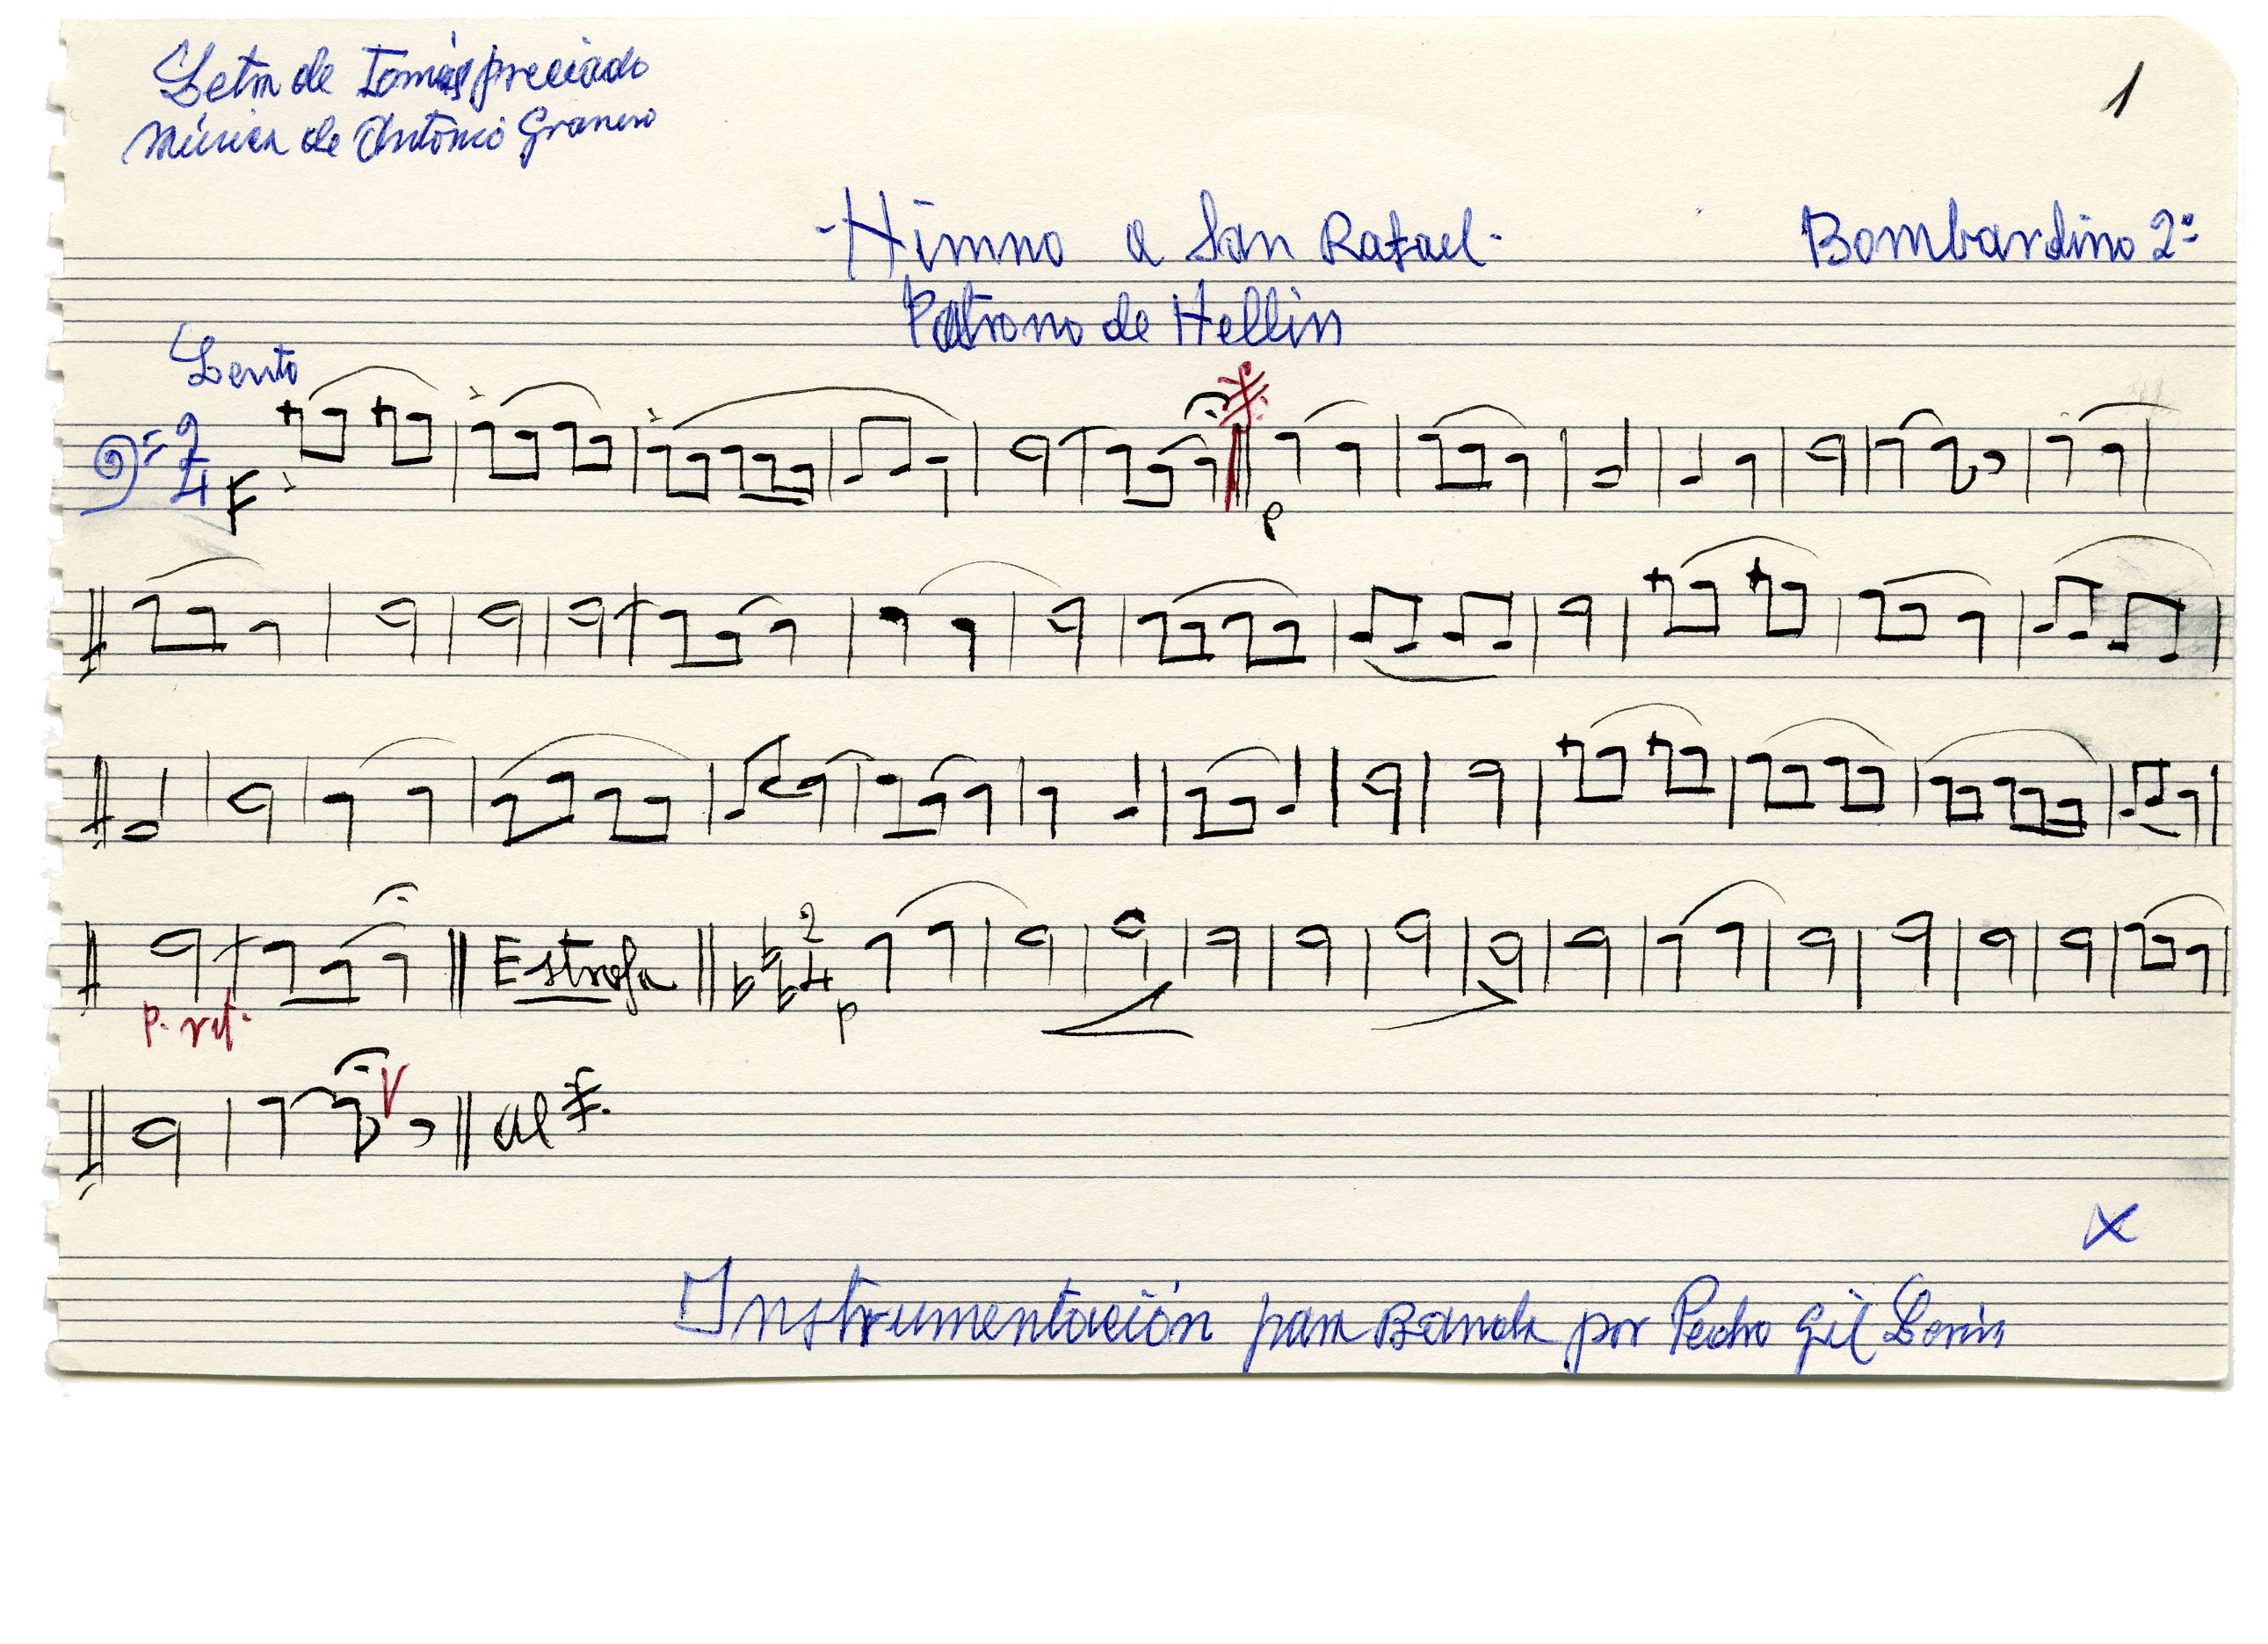 Letra de Tomás preciado
Música de Antonio Granero
1
-Himno a San Rafael-
Bombardino 2º
Patrono de Hellin
Lento
2
4
F
p
p. rit.
Estrofa
2
4
p
V
Al
X
Instrumentación para Banda por Pedro Gil Lerín